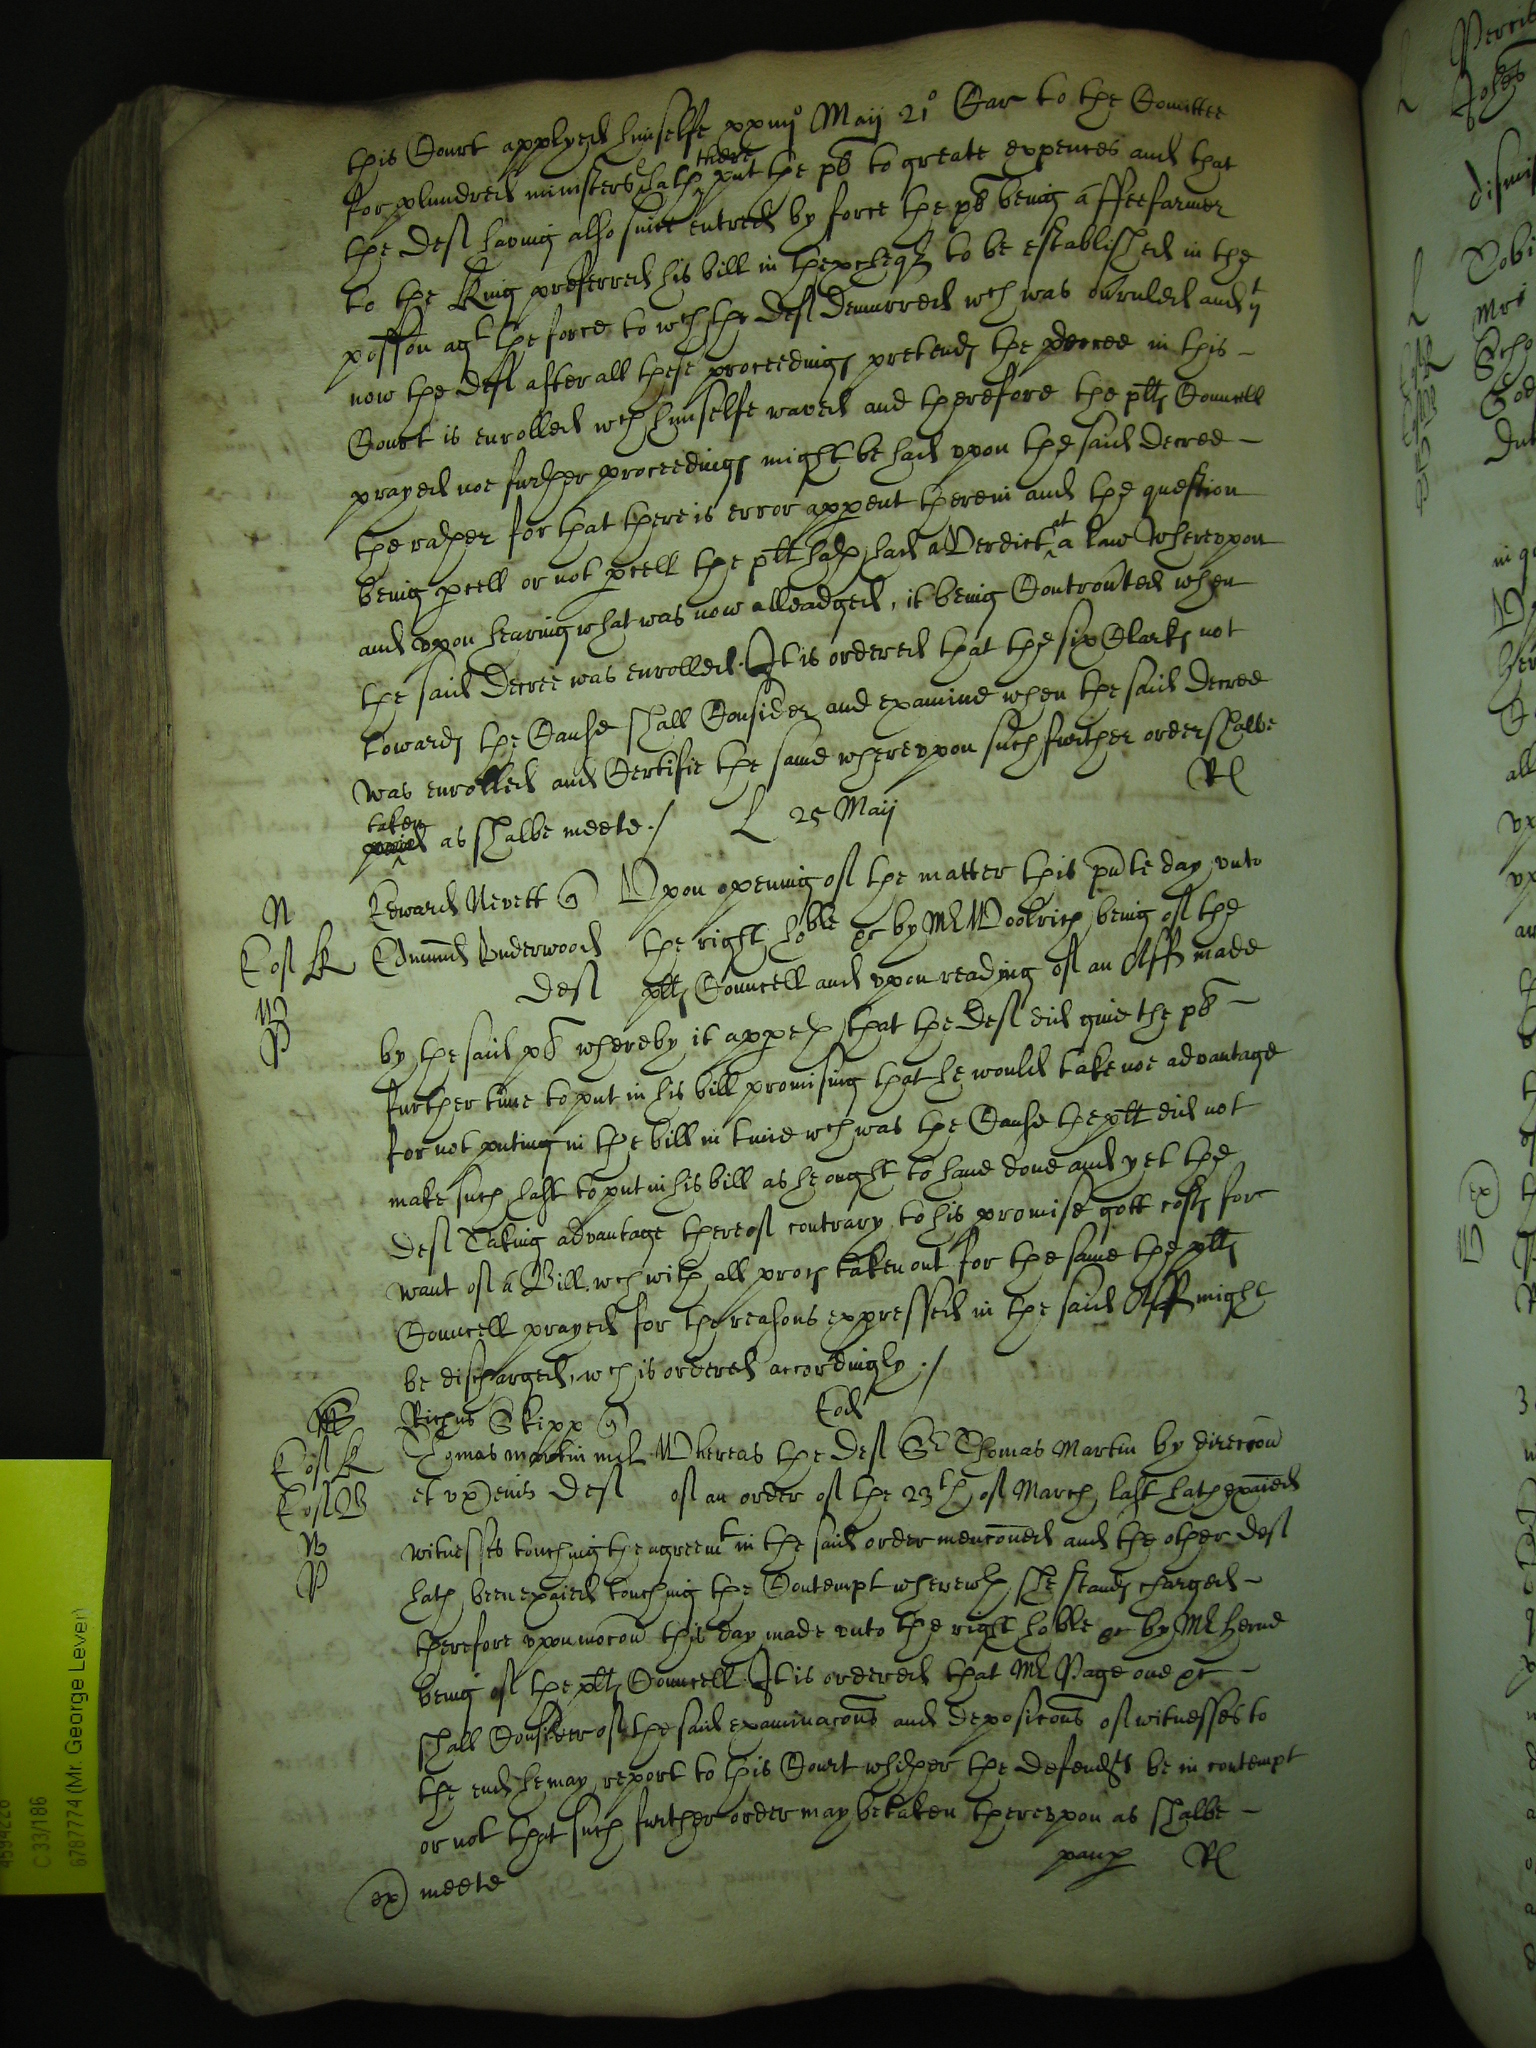 this Court applyed himselfe xxiiij° Maij 21° Car to the Comittee
for plundred ministers & hath there put the plt to greate expences and that
the Deft having also since entred by force the plt being a ffeefarmer
to the King preferred his bill in thexchequer to be established in the
possion agt the force to wch the Deft Demurred wch was ovruled and yt
now the Deft after all these proceedings pretends the decree in this
Court is enrolled wch himselfe waved and therefore the plts Councell
prayed noe further proceedings might be had upon the said decree
the rather for that there is error appent therein and the question
being pcell or not pcell the plt hath had a Verdict at a law Whereupon
and upon hearing what was now alleadged, it being Controuted when
the said Decree was enrolled. It is ordered that the six Clarks not
towards the Cause shall Consider and examine when the said decree
was enrolled and Certifie the same whereupon such further order shalbe
taken as shalbe meete ./ L 25 Maij Rl
N Edward Nevett q Upon opening of the matter this pnte day unto
Cof LK Edmund Underwood the right hoble &c by Mr Woolrich being of the
Deft plts Councell and upon reading of an Aff made
P by the said plt whereby it appeth that the Deft did give the plt
further time to put in his bill promising that he would take noe advantage
for not puting in the bill in time wch was the Cause the plt did not
make such hast to put in his bill as he ought to have done and yet the
Deft Taking advantage thereof contrary to his promise gott costs for
want of a Bill, wch with all proces taken out for the same the plts
Councell prayed for the reasons expressed in the said Aff might
be discharged, wch is ordered accordingly ./
Richus Skipp q Eod
Cof K Thomas Martin mil Whereas the Deft Sr Thomas Martin by direccon
Cof W et ux eius Deft of an order of the 23th of March last hath exaied
witnesses touching the agreemt in the said order menconed and the other Deft
P hath been exaied touching the Contempt wherewth she stands charged
therefore upon mocon this day made unto the right hoble &c by Mr Herne
being of the plts Councell. It is ordered that Mr Page one &c
shall Consider of the said examinacons and depositcons of witnesses to
the end he may report to this Court whether the defendts be in contempt
or not that such further order may be taken thereupon as shalbe
ex meete Rl
C 33/186
6787774 (Mr. George Lever)